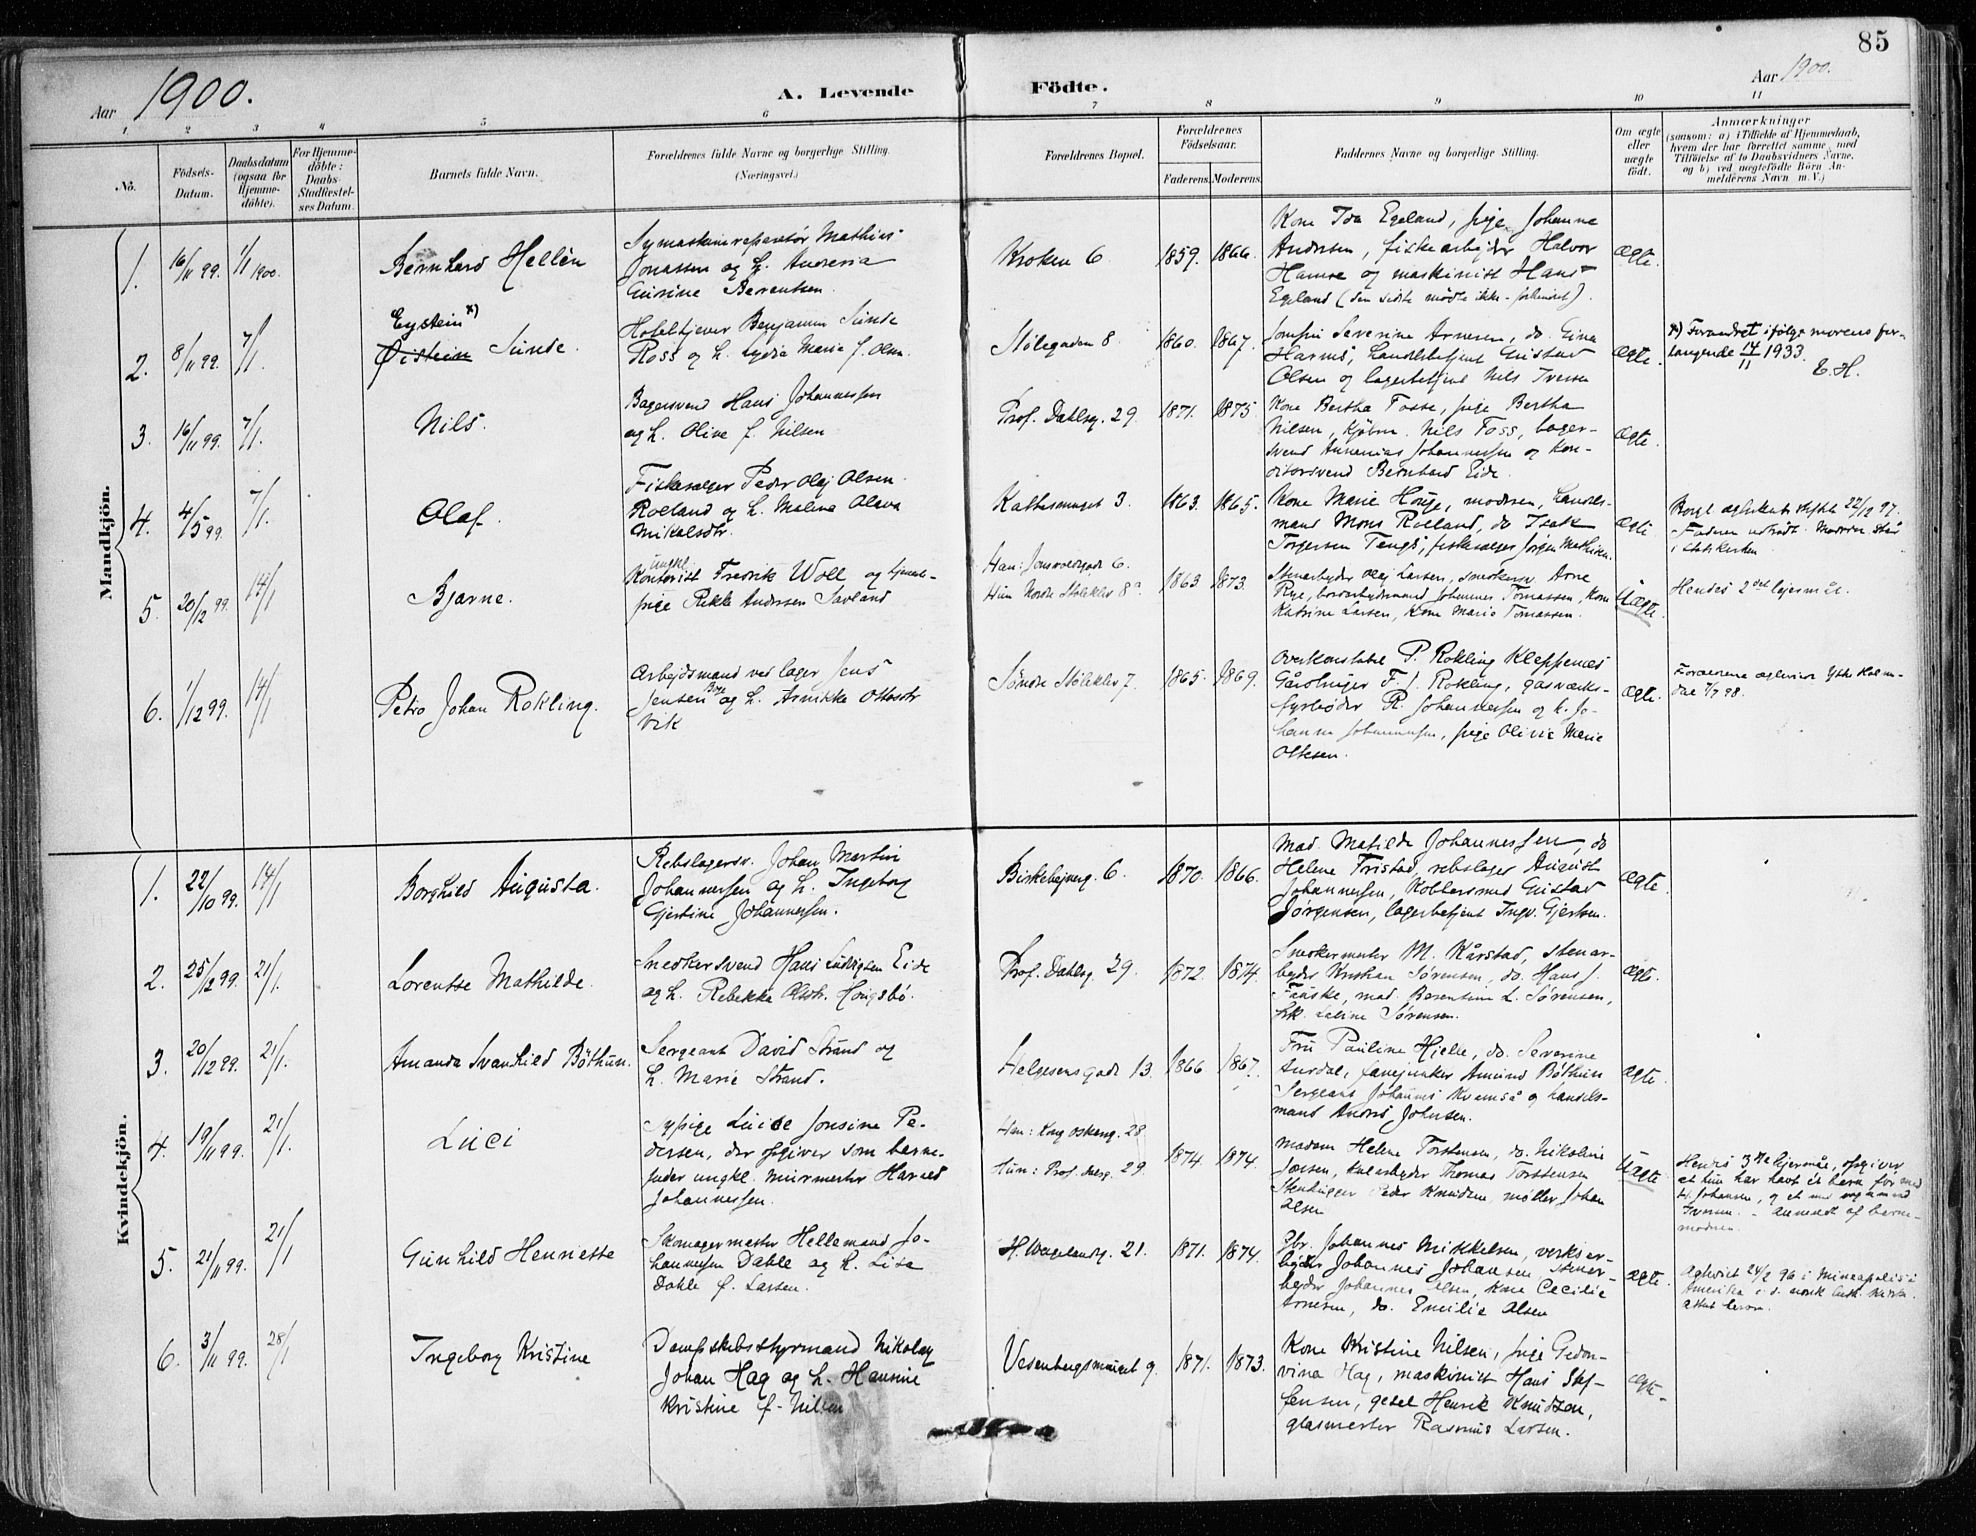 85
Aar 1900.
A. Levende Födte.
Aar 1900.
1 2 3 4 5 6 7 8 9 10 11
No.
Födsels-Datum.
Daabsdatum (ogsaa for Hjemme-döbte).
For Hjemme-döbte: Daabs Stadfæstel-ses Datum.
Barnets fulde Navn.
Forældrenes fulde Navne og borgerlige Stilling.
(Næringsvei.)
Forældrenes Bopæl.
Forældrenes Födselsaar.
Faderens. Moderens.
Faddernes Navne og borgerlige Stilling.
Om ægte eller uægte födt.
Anmærkninger
(saasom: a) i Tilfælde af Hjemmedaab,
hvem der har forrettet samme, med
Tilföielse af to Daabsvidners Navne,
og b) ved uægtefödte Börn An-
melderens Navn m. V.)
Mandkjön.
1. 16/11 99. 1/1 1900. Bernhard Hellén
Symaskinreparatør Mathias
Jonassen og h. Andrea
Gurine Berentsen.
Kroken 6 1859. 1866.
Kone Ida Egeland, pige Johanna
Andersen, fiskearbejder Halvor
Hamre og maskinist Hans
Egeland (den sidste mødte ikke - forhindret).
Ægte.
2. 8/11 99. 7/1. Eystein x)
Øistein Sunde.
Hotelltjener Benjamin Sunde
Ross og h. Lydia Marie f. Olsen
Stølegaden 8 1860. 1867.
Jomfru Severine Arnesen, do. Gina
Harms, handelsbetjent Gustav
Olsen og lagerbetjent Nils Iversen
Ægte.
x) Forandret ifølge morens for-
langende 14/11 1933.
E.H.
3. 16/11 99. 7/1. Nils.
Bagersvend Hans Johannessen
og h. Olive f. Nilsen
Prof. Dahlsg. 29 1871. 1875.
Kone Bertha Fosse, pige Bertha
Nilsen, kjøbm. Nils Foss, bager-
svend Annanias Johannessen og kon-
ditorsvend Bernhard Eide.
Ægte.
4. 4/5 99. 7/1. Olaf.
Fiskesælger Peder Olaj Olsen
Roeland og h. Malene Olava
Mikalsdtr.
Kattesmuget 3 1863. 1865.
Kone Marie Houge, moderen, handels-
mand Mons Roeland, do Isak
Torgersen Tengs, fiskesælger Jørgen Mathisen.
Ægte
Borgl ægteskab stiftet 22/12 97.
Faderen udtrådt. Moderen står
i statskirken
5. 20/12 99. 14/1 Bjarne.
ungkl.
Kontorist Fredrik Woll og tjeneste-
pige Rikke Andersen Savland
Han: Jonsvoldgade 6.
Hun Nordre Støleklev 8a 1863 1873.
Stenarbejder Olaj Larsen, snedkersv. Arne
Rye, bordarbejdsmand Johannes Tomassen, kone
Katrine Larsen, kone Marie Tomassen.
Uægte.
Hendes 2det lejermål.
6. 1/12 99. 14/1 Petro Johan Rokling.
Arbejdsmand ved lager Jens
Jensen og h. Asnikke Ottosdtr
Vik
Søndre Støleklev 7. 1865. 1869.
Overkonstabel P. Rokling Kleppenes
Gårdbruger F. J. Rokling, gasværks-
fyrbøder R. Johannessen og h. Jo-
hanna Johannessen, pige Olivie Marie
Ottesen.
Ægte.
Forældrene ægteviet Ytre Holm-
dal 7/7 98.
Kvindekjön.
1. 22/10 99. 14/1 Borghild Augusta.
Rebslagersv. Johan Martin
Johannessen og h. Ingeborg
Gjertine Johannessen.
Birkehejveg. 6. 1870. 1866.
Mad. Matilde Johannessen, do
Helene Tristad, rebslager August
Johannessen, kobbersmed Gustav
Jørgensen, lagerbetjent Ingv. Gjertsen.
Ægte.
2. 25/12 99. 21/1. Lorentse Mathilde.
Snedkersvend Hans Ludvigsen Eide
og h. Rebekka Olsdtr. Hougsbø.
Prof. Dahlsg. 29. 1872. 1874.
Snedkermester M. Kårstad, stenar-
bejder Kristian Sørensen, do. Hans J.
Fauske, mad. Berentine L. Sørensen,
frk. Laline Sørensen.
Ægte.
3. 20/12 99. 21/1. Amanda Svanhild Bøthun.
Sergeant David Strand og
h. Marie Strand.
Helgesensgade 13. 1866 1867.
Fru Pauline Hjelle, do. Severine
Aurdal, fanejunker Amund Bøthun
Sergeant Johannes Kvemså og handels-
mand Andres Johnsen.
Ægte.
4. 19/11 99. 21/1. Luci
Sypige Lucie Jonsine Pe-
dersen, der opgiver som barne-
fader ungkl. murmester Harald
Johannessen.
Han: Kong Oskarsg. 28
Hun: Prof. Dahlsg. 29. 1874. 1874.
Madam Helene Torstensen, do. Nikoline
Larsen, stenarbejder Thomas Torstensen
Stenhugger Peder Knudsen, møller Johan
Olsen
Uægte.
Hendes 3die lejermål, opgiver
at hun har havt et barn før med
H. Johansen, og et med ungkarl
Iversen. - Anmeldt af barne-
moderen.
5. 21/11 99. 21/1 Gunhild Henriette
Skomagermester Hellemand Jo-
hannessen Dahle og h. Lisa
Dahle f. Larsen.
H. Wergelandsg. 21. 1871. 1874.
Gbr. Johannes Mikkelsen, verksar-
bejder Johannes Johansen stenar-
bejder Johannes Olsen, kone Cecilie
Arnesen, do. Emilie Olsen
Ægte.
Ægteviet 24/2 96 i Mineapolis i
Amerika i d. norsk luth. kirke.
6. 3/11 99. 28/1 Ingeborg Kristine
Dampskibsstyrmand Nikolay
Johan Hag og h. Hansine
Kristine f. Nilsen
Vesenbergsmuget 9. 1871. 1873.
Kone Kristine Nilsen, pige Gedor-
vina Hag, maskinist Hans Stef-
fensen, gesel Henrik Knudsen,
glasmester Rasmus Larsen.
Ægte.